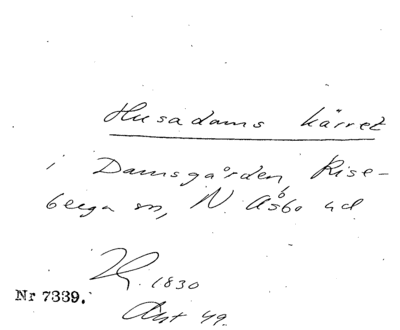 Husadams kärret
i Damsgården Rise-
berga sn, N. Åsbo hd
1830
Nr 7339.
Akt 49.